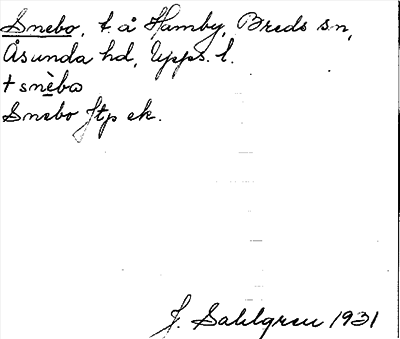 Snebo, t. å Hamby, Breds sn,
Åsunda hd, Upps. l.
+ snèba
Snebo Jtp ek.
J. Sahlgren 1931